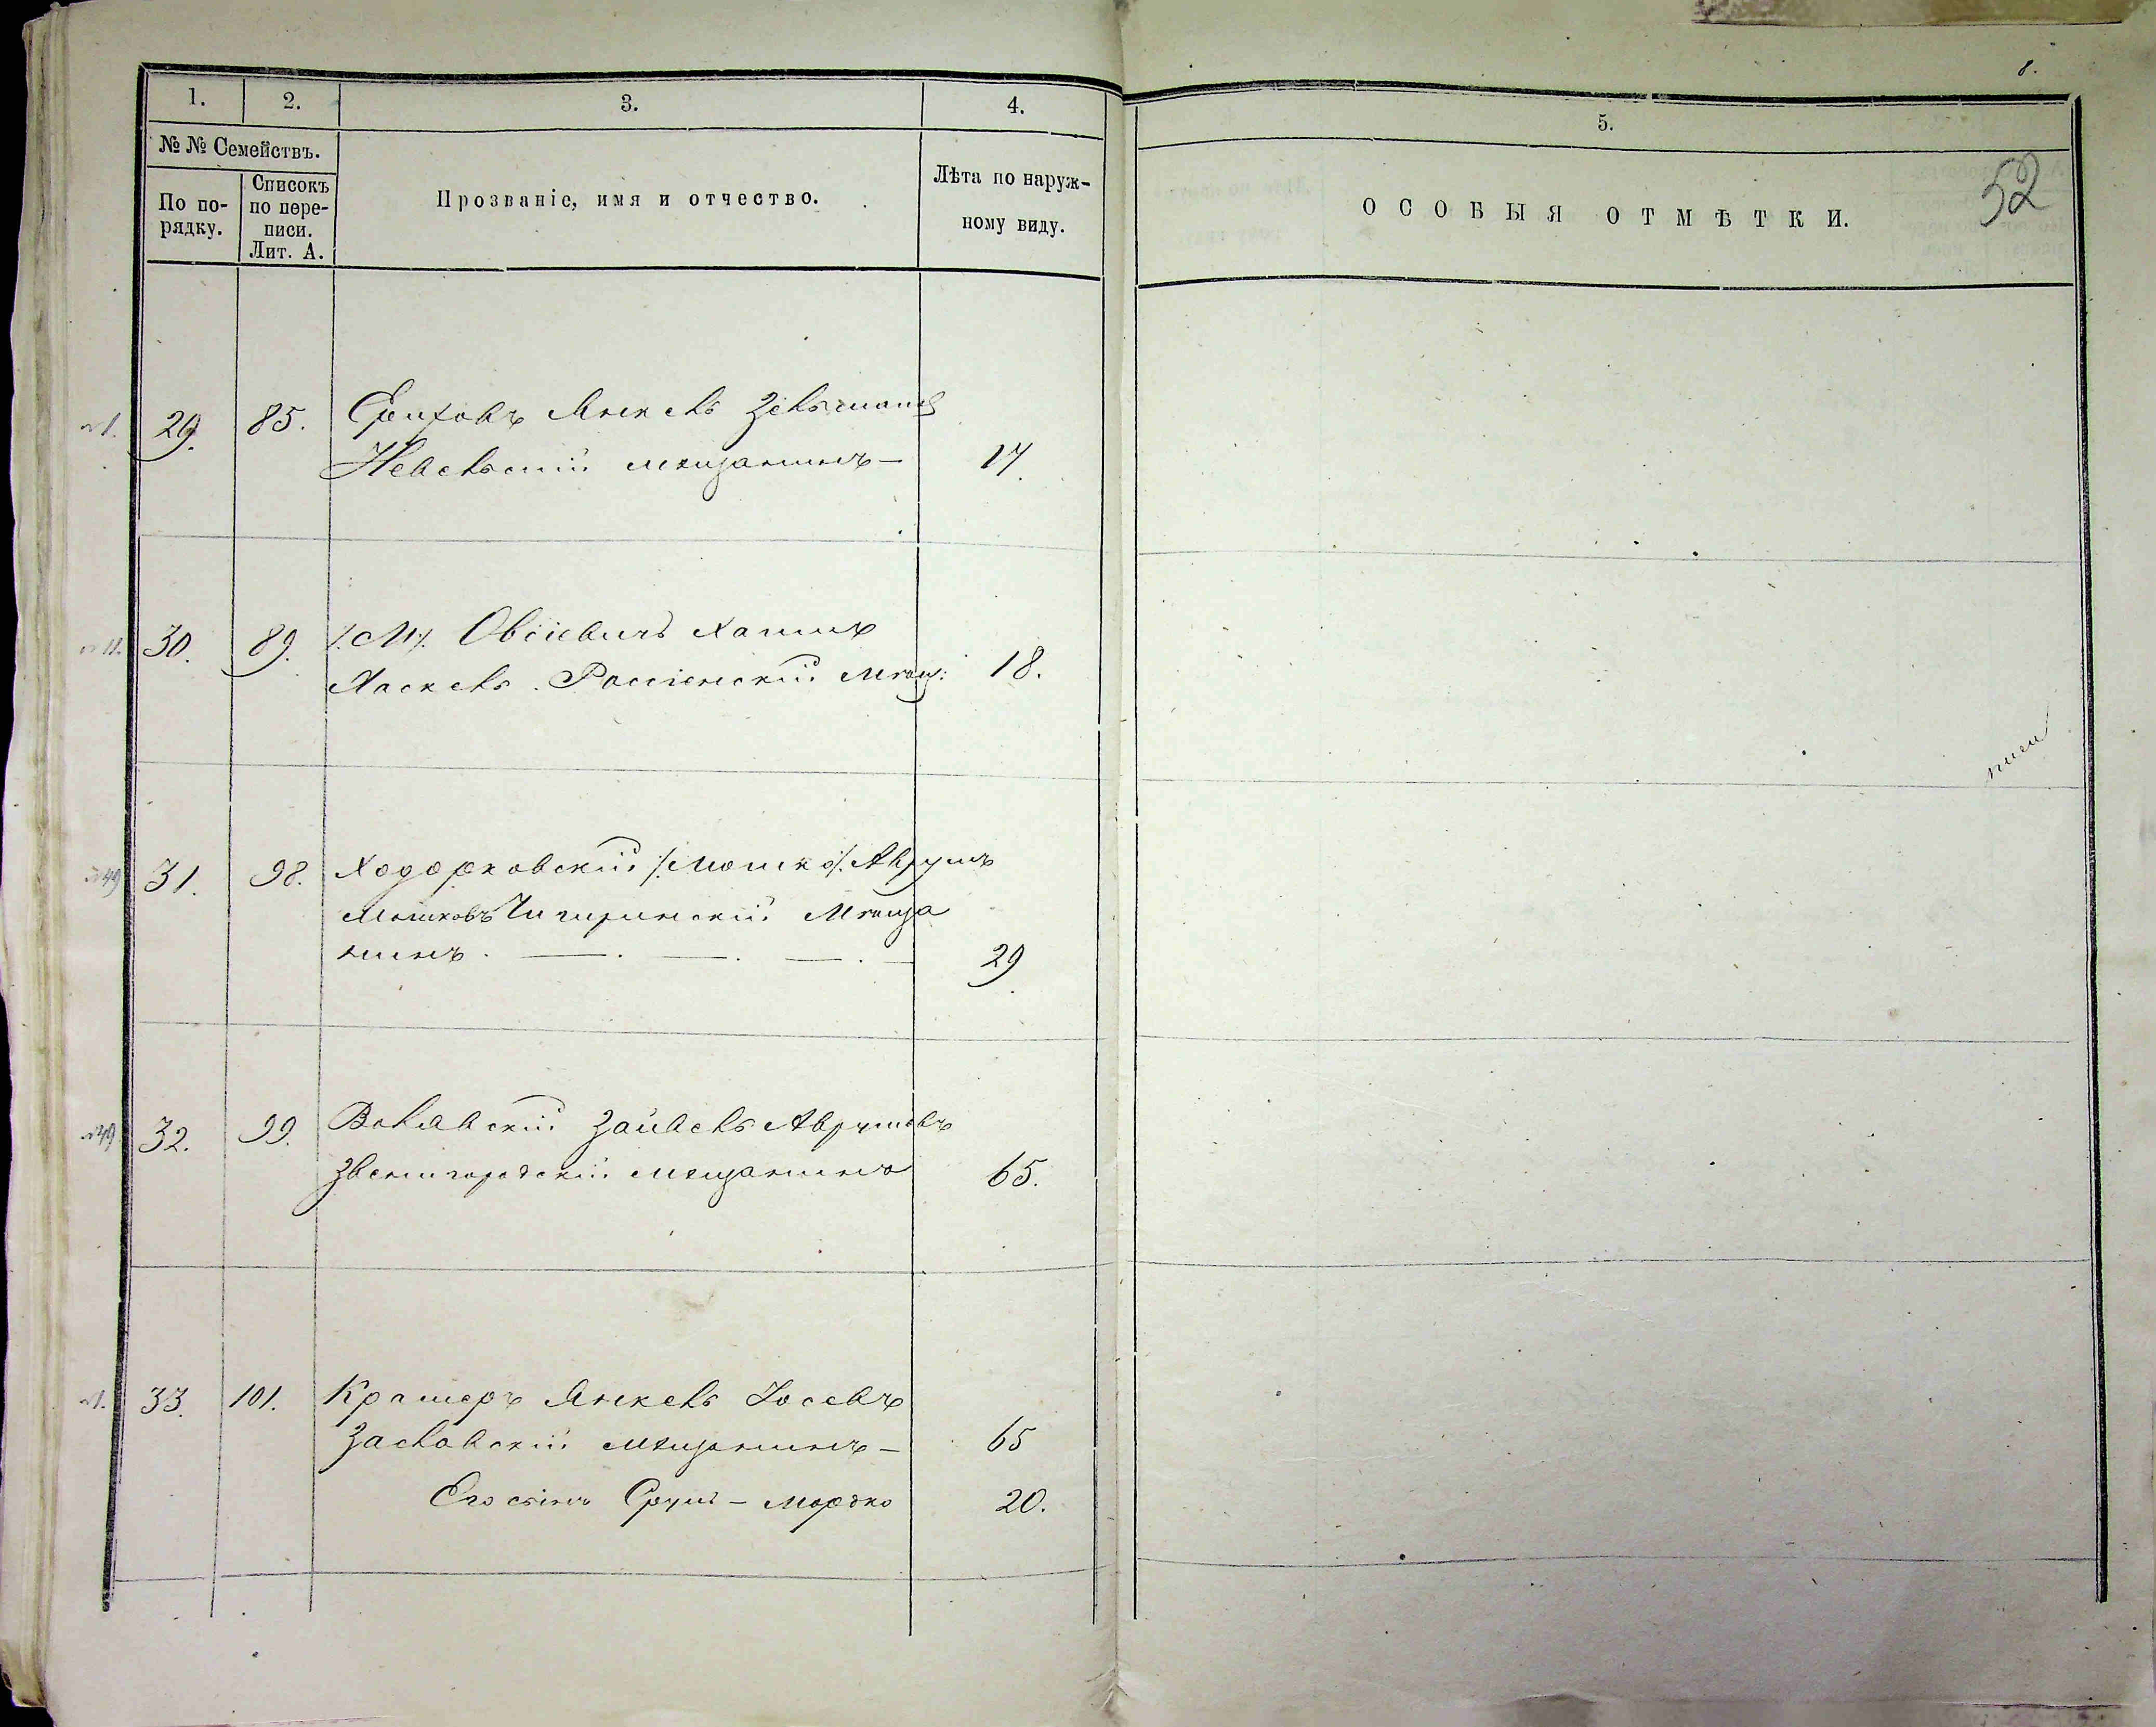 8.
52
1.
2.
3.
4.
5.
№ № Семействъ.
По по-
рядку.
Списокъ
по пере-
писи.
Лит. А.
Прозваніе, имя и отчество.
Лѣта по наруж-
ному виду.
ОСОБЫЯ ОТМѢТКИ.
№1. 29. 85. Янкель
Невельскій мѣщанинъ — 17.
№11. 30. 89. /:М:/ Овсіевичъ Хаимъ
Хаскель. Россіенскій мѣщ: 18.
№49 31. 98. Ходорковскій /:Мошко:/ Аврумъ
Мошковъ Чигиринскій Мѣща
нинъ. —. —. —. — 29.
№49 32. 99. Зайвель Аврумовъ
Звенигородскій мѣщанинъ 65.
№1. 33. 101. Крамеръ Янкель Іосевъ
Заславскій мѣщанинъ — 65
Его сынъ Сруль - Мордко 20.